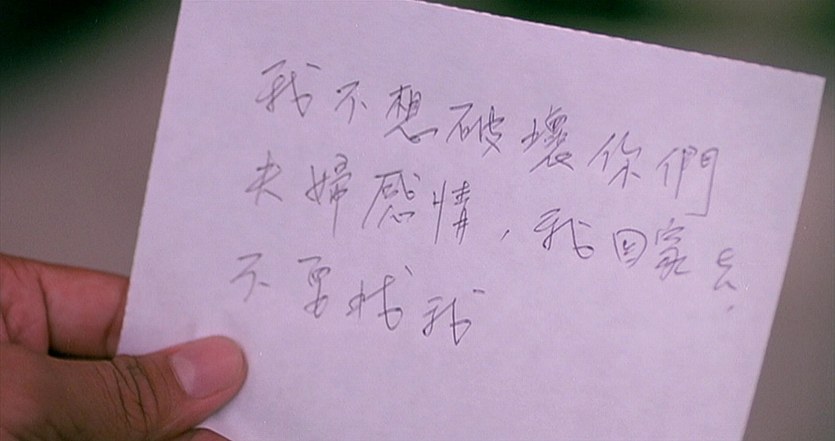 我不想破壞你們
夫婦感情，我回家去，
不要找我